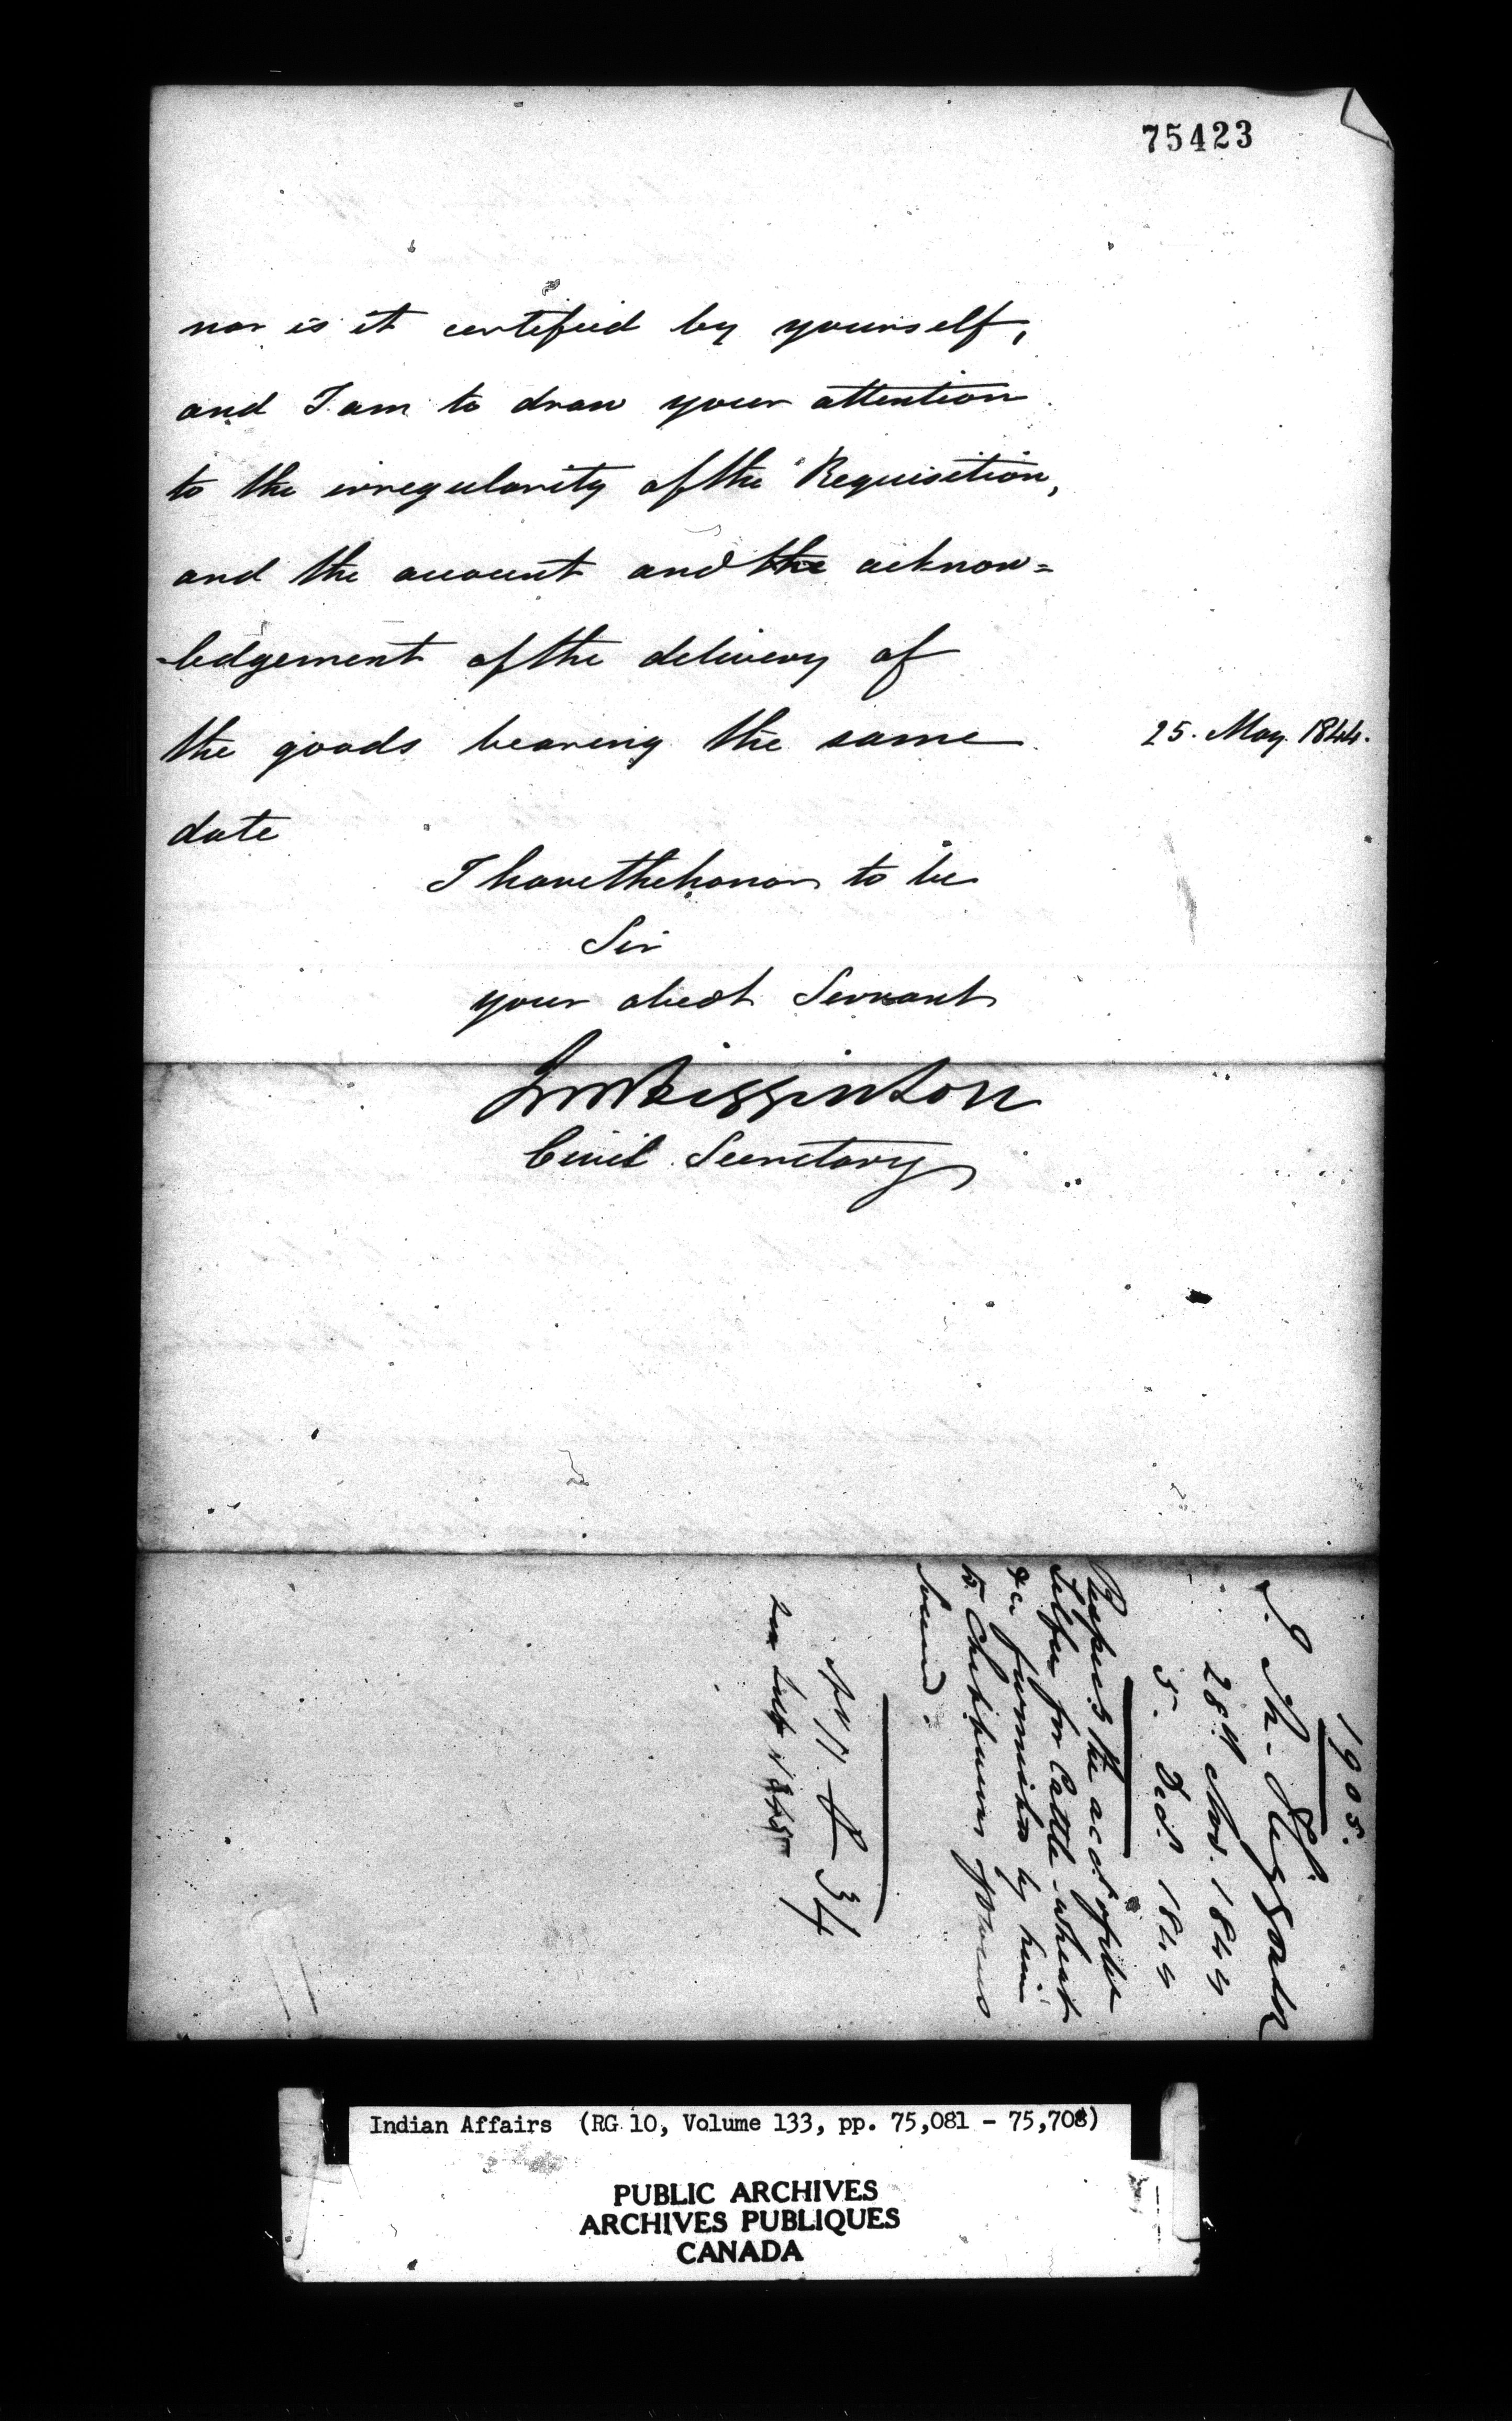 75423
nor is it certified by yourself,
and I am to draw your attention
to the irregularity of the Requisition,
and the account and the acknow=
-ledgement of the delivery of
the goods bearing the same
25. May. 1844.
date
I have the honor to be
Sir
your obedt Servant
JM Higginson
Civil Secretary
1905.
Higginson
28th Nov. 1844
5. Decr 1844
Respects the acct of
for Cattle - wheat
&c. furnished by him
to Chippewas of Owens
Sound.
34
Indian Affairs (RG 10, Volume 133, pp. 75,081 - 75,708)
PUBLIC ARCHIVES
ARCHIVES PUBLIQUES
CANADA